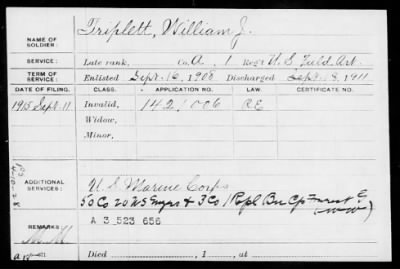 Triplett, William J.
NAME OF SOLDIER:
SERVICE: Late rank, Co. A, 1 Reg't U.S. Field Art.
TERM OF SERVICE: Enlisted Sept. 16, 1908 Discharged Sept. 1911
DATE OF FILING. CLASS. APPLICATION NO. LAW. CERTIFICATE NO.
1915 Sept. 11 Invalid, 1421006
Widow,
Minor,
ADDITIONAL SERVICES: U S Marine Corps
50 Co 20 US Engrs & 3 Co 1 Repl Bn Cp Forrest
A 3 523 656
REMARKS:
Died , 1 , at